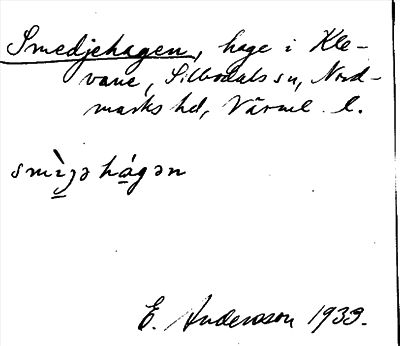 Smedjehagen, hage i Kle-
vane, Silbodals sn, Nord-
marks hd, Värml. l.
smìjə hágən
E. Andersson 1933.